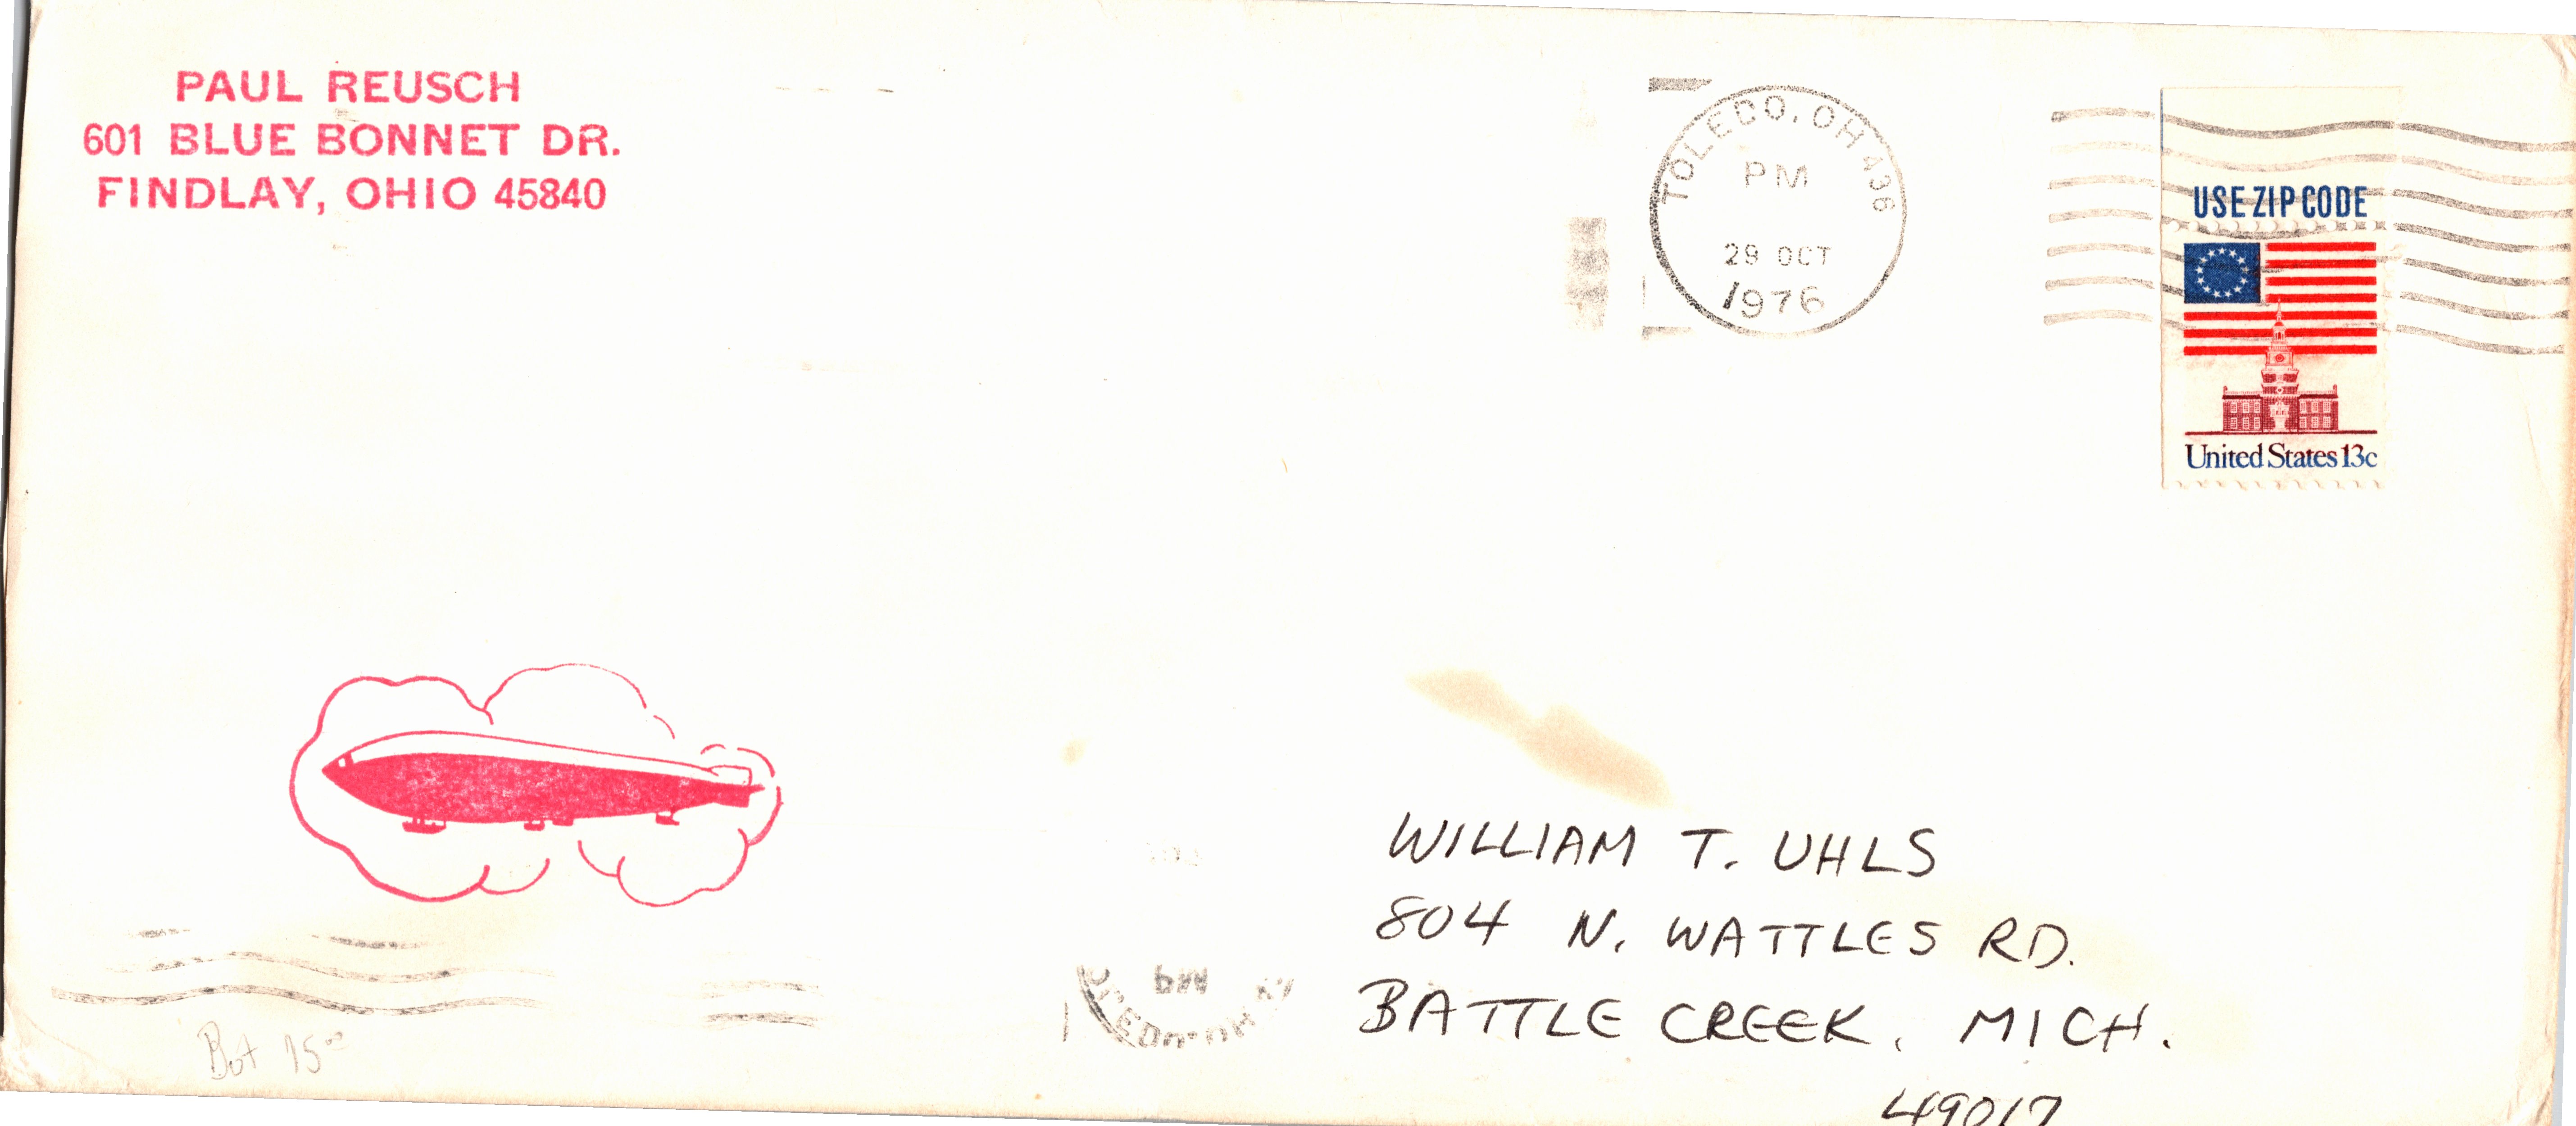 PAUL REUSCH
601 BLUE BONNET DR.
FINDLAY, OHIO 45840
TOLEDO, OH 436
PM
29 OCT
1976
USE ZIP CODE
United States 13c
WILLIAM T. UHLS
804 N. WATTLES RD.
BATTLE CREEK, MICH.
49017
PM
Bot 15⁰⁰